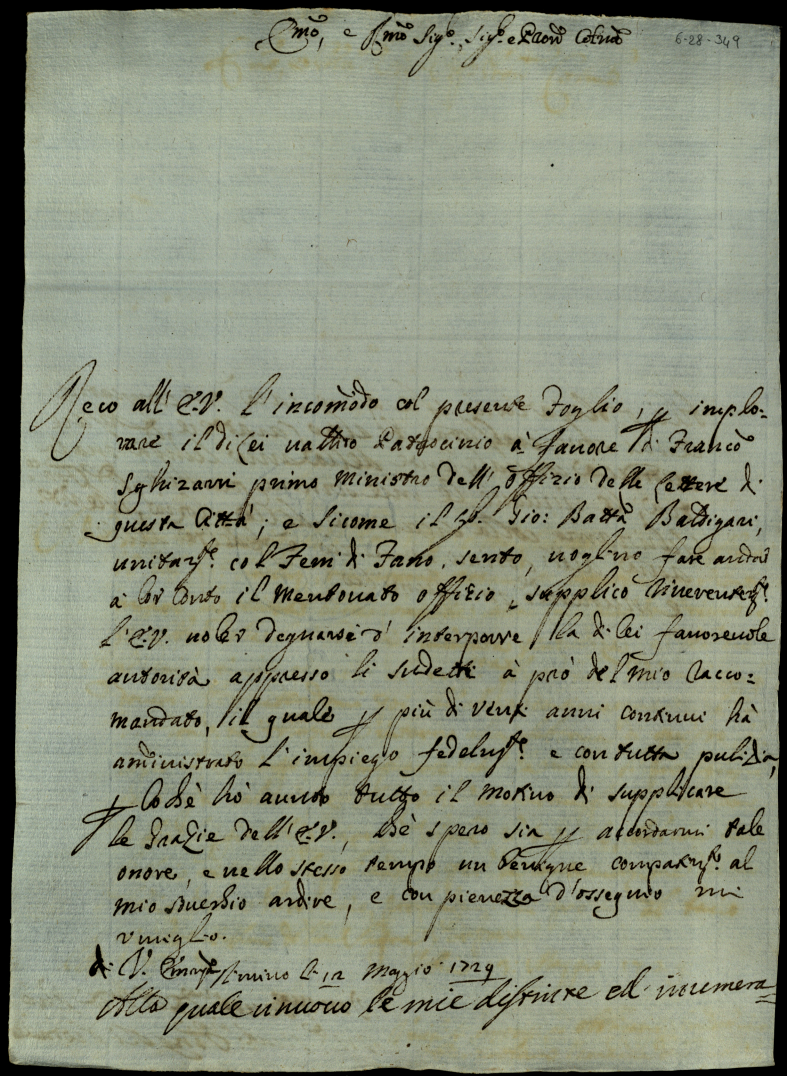 Emo, e Rmo Sigr., Sigr. e Pron Colmo
6-28-349
Reco all' E.V. l'incomodo col presente Foglio, p implo-
rare il di Lei valido Patrocinio à favore di Franco
Sghizarri primo Ministro dell' Offizio delle Lettere di
questa Città; e sicome il Sr. Gio: Batta
unitamte. col Ferri di Fano, sento, voglino fare andar
à lor conto il mentovato offizio, supplico riverentemte.
l'E.V. voler degnarsi d' interporre la di lei favorevole
autorità appresso li sudetti à prò del mio racco-
mandato, il quale p più di venti anni continui hà
aministrato l'impiego fedelmte. e con tutta pulizia,
p lo chè hò auuto tutto il motivo di supplicare
le Grazie dell' E.V., chè spero sia p accordarmi tale
onore, e nello stesso tempo un benigne compatimto. al
mio soverchio ardire, e con pienezza d'ossequio mi
umiglio.
di V. Emza Rimino li 12 Maggio 1729
Alla quale rinuovo le mie distinte ed innumera-